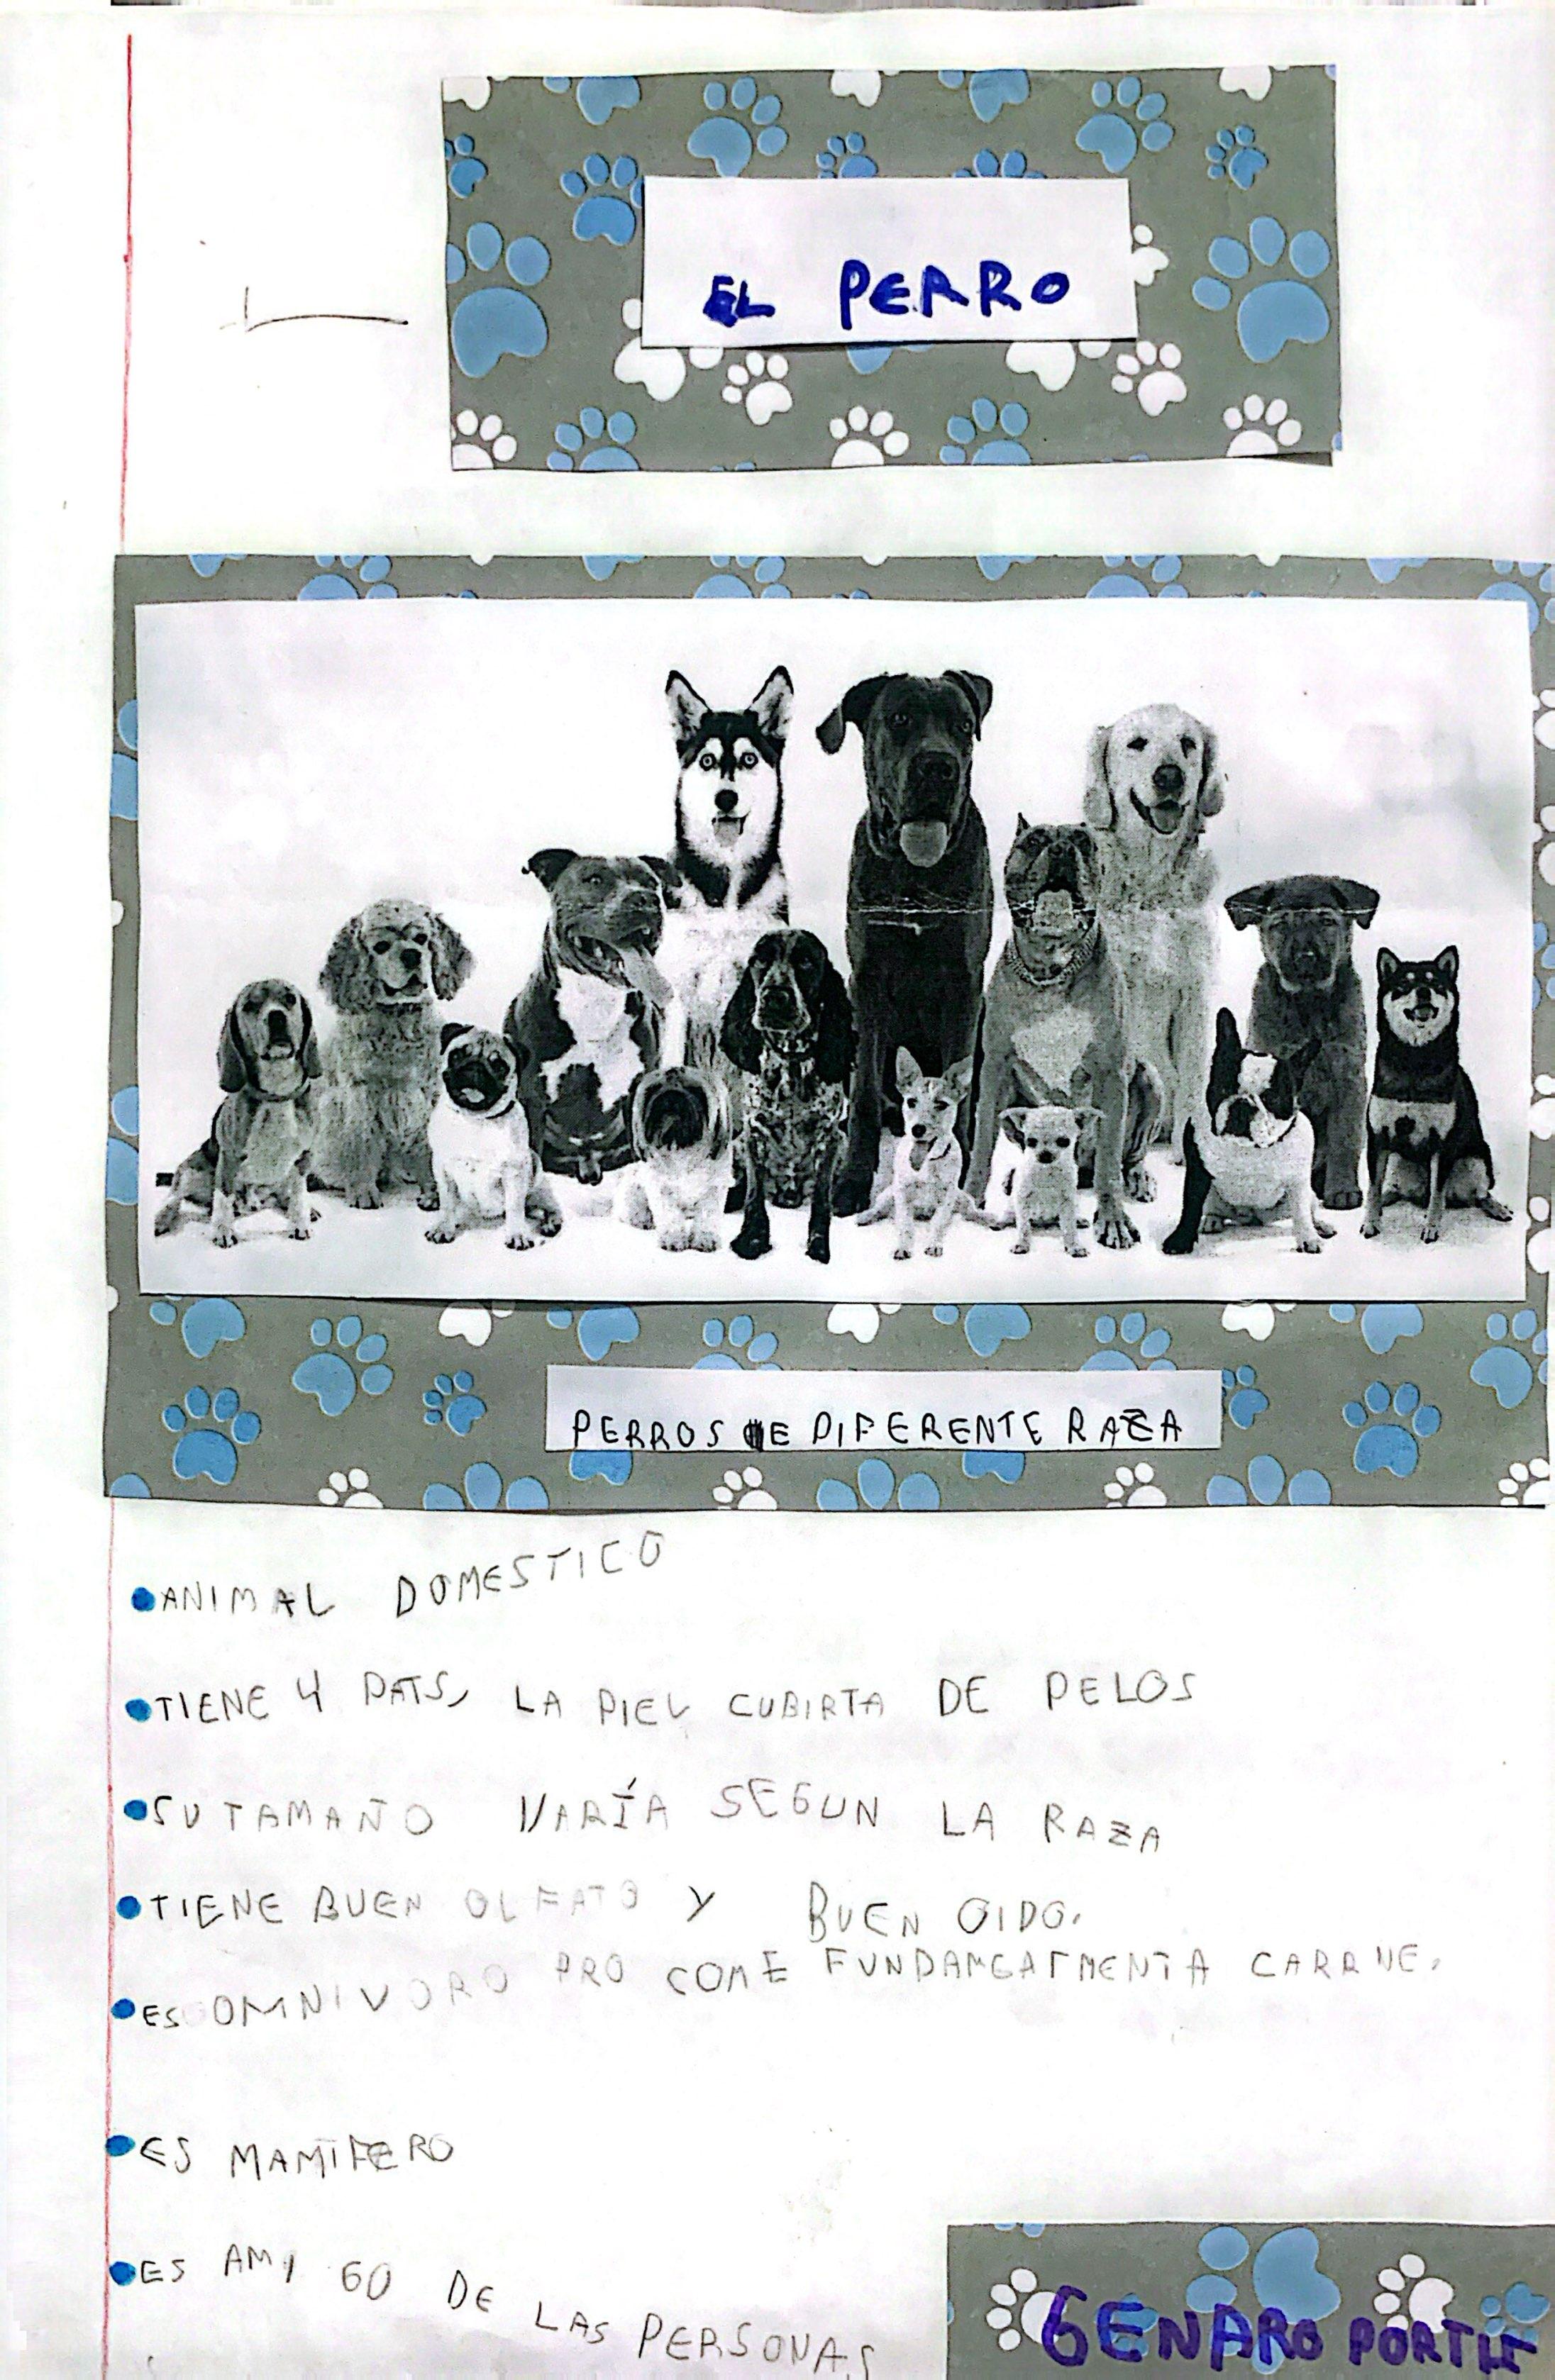 EL PERRO
PERROS DE DIFERENTE RAZA
ANIMAL DOMESTICO
TIENE 4 PATS, LA PIEL CUBIRTA DE PELOS
SU TAMAÑO VARÍA SEGUN LA RAZA
TIENE BUEN OLFATO Y BUEN OIDO.
ES OMNIVORO PRO COME CARRNE.
ES MAMIFERO
ES AMIGO DE LAS PERSONAS
GENARO